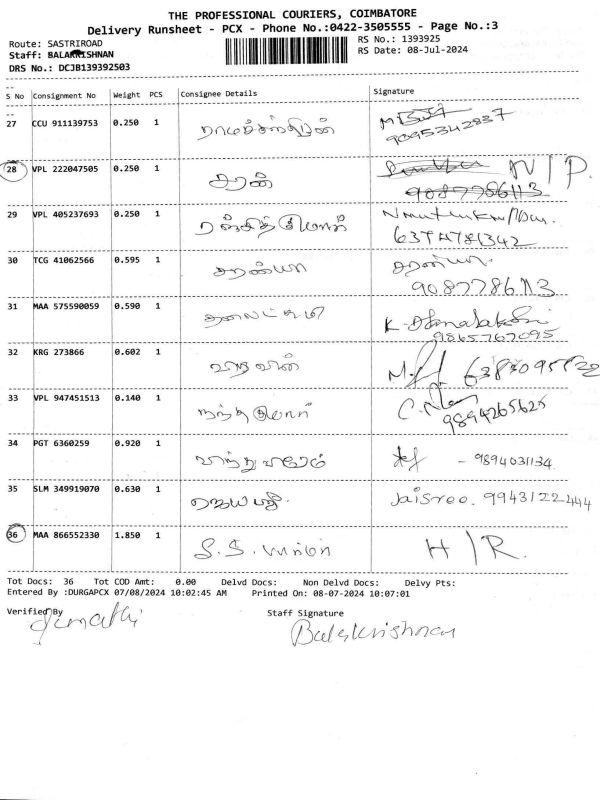 THE PROFESSIONAL COURIERS, COIMBATORE
Delivery Runsheet - PCX - Phone No.:0422-3505555 - Page No.:3
Route: SASTRIROAD
RS No.: 1393925
Staff: BALAKRISHNAN
RS Date: 08-Jul-2024
DRS No.: DCJB139392503
S No Consignment No Weight PCS Consignee Details Signature
27 CCU 911139753 0.250 1 ராமச்சந்திரன்
9095342837
28 VPL 222047505 0.250 1 சரன் N/P.
9087786113
29 VPL 405237693 0.250 1 ரஞ்சித் குமார்
6374781342
30 TCG 41062566 0.595 1 சரண்யா சரண்யா
9087786113
31 MAA 575590059 0.590 1 K. Dhanalakshmi
9865767095
32 KRG 273866 0.602 1
33 VPL 947451513 0.140 1 நந்தகுமார்
9894265625
34 PGT 6360259 0.920 1 - 9894031134
35 SLM 349919070 0.630 1 ஜெயஸ்ரீ. Jaisree. 9943122444
36 MAA 866552330 1.850 1 H/R.
Tot Docs: 36 Tot COD Amt: 0.00 Delvd Docs: Non Delvd Docs: Delvy Pts:
Entered By :DURGAPCX 07/08/2024 10:02:45 AM Printed On: 08-07-2024 10:07:01
Verified By Staff Signature
Balakrishnan